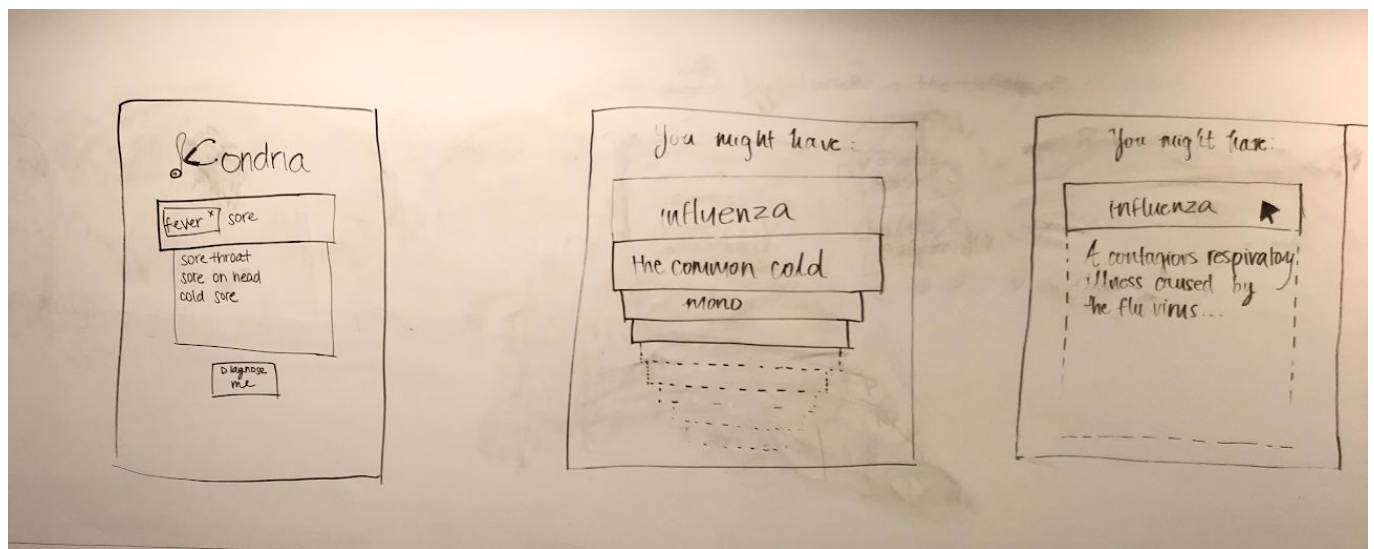 Condria
fever x sore
sore throat
sore on head
cold sore
Diagnose
me
You might have:
influenza
the common cold
mono
You might have:
influenza
A contagious respiratory
illness caused by
the flu virus...